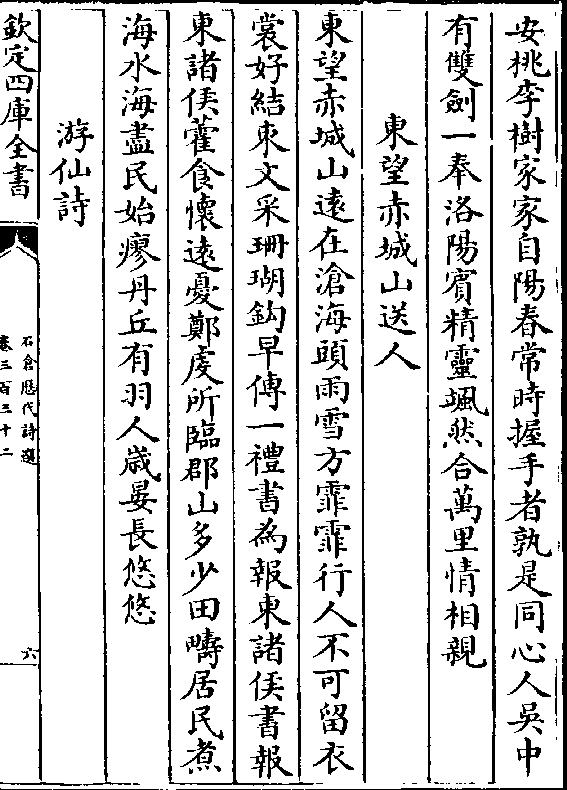 安桃李樹家家自陽春常時握手者孰是同心人吳中
有雙劍一奉洛陽賓精靈颯然合萬里情相親
東望赤城山送人
東望赤城山遠在滄海頭雨雪方霏霏行人不可留衣
裳好結束文采珊瑚鈎早傳一禮書為報東諸侯書報
東諸侯藿食懷遠憂鄭虔所臨郡山多少田疇居民煮
海水海盡民始瘳丹丘有羽人歲晏長悠悠
游仙詩
欽定四庫全書
石倉歴代詩選
卷三百三十二
六